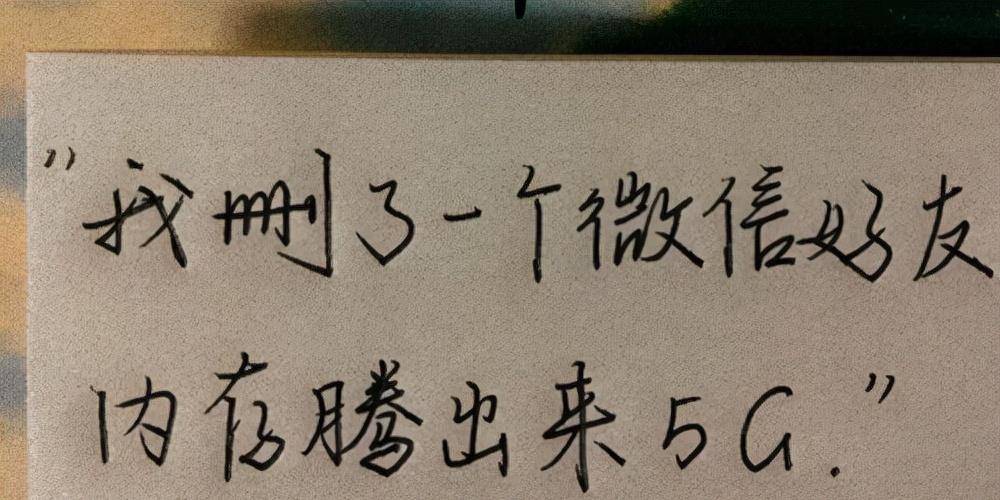 "我删了一个微信好友
内存腾出来5G."